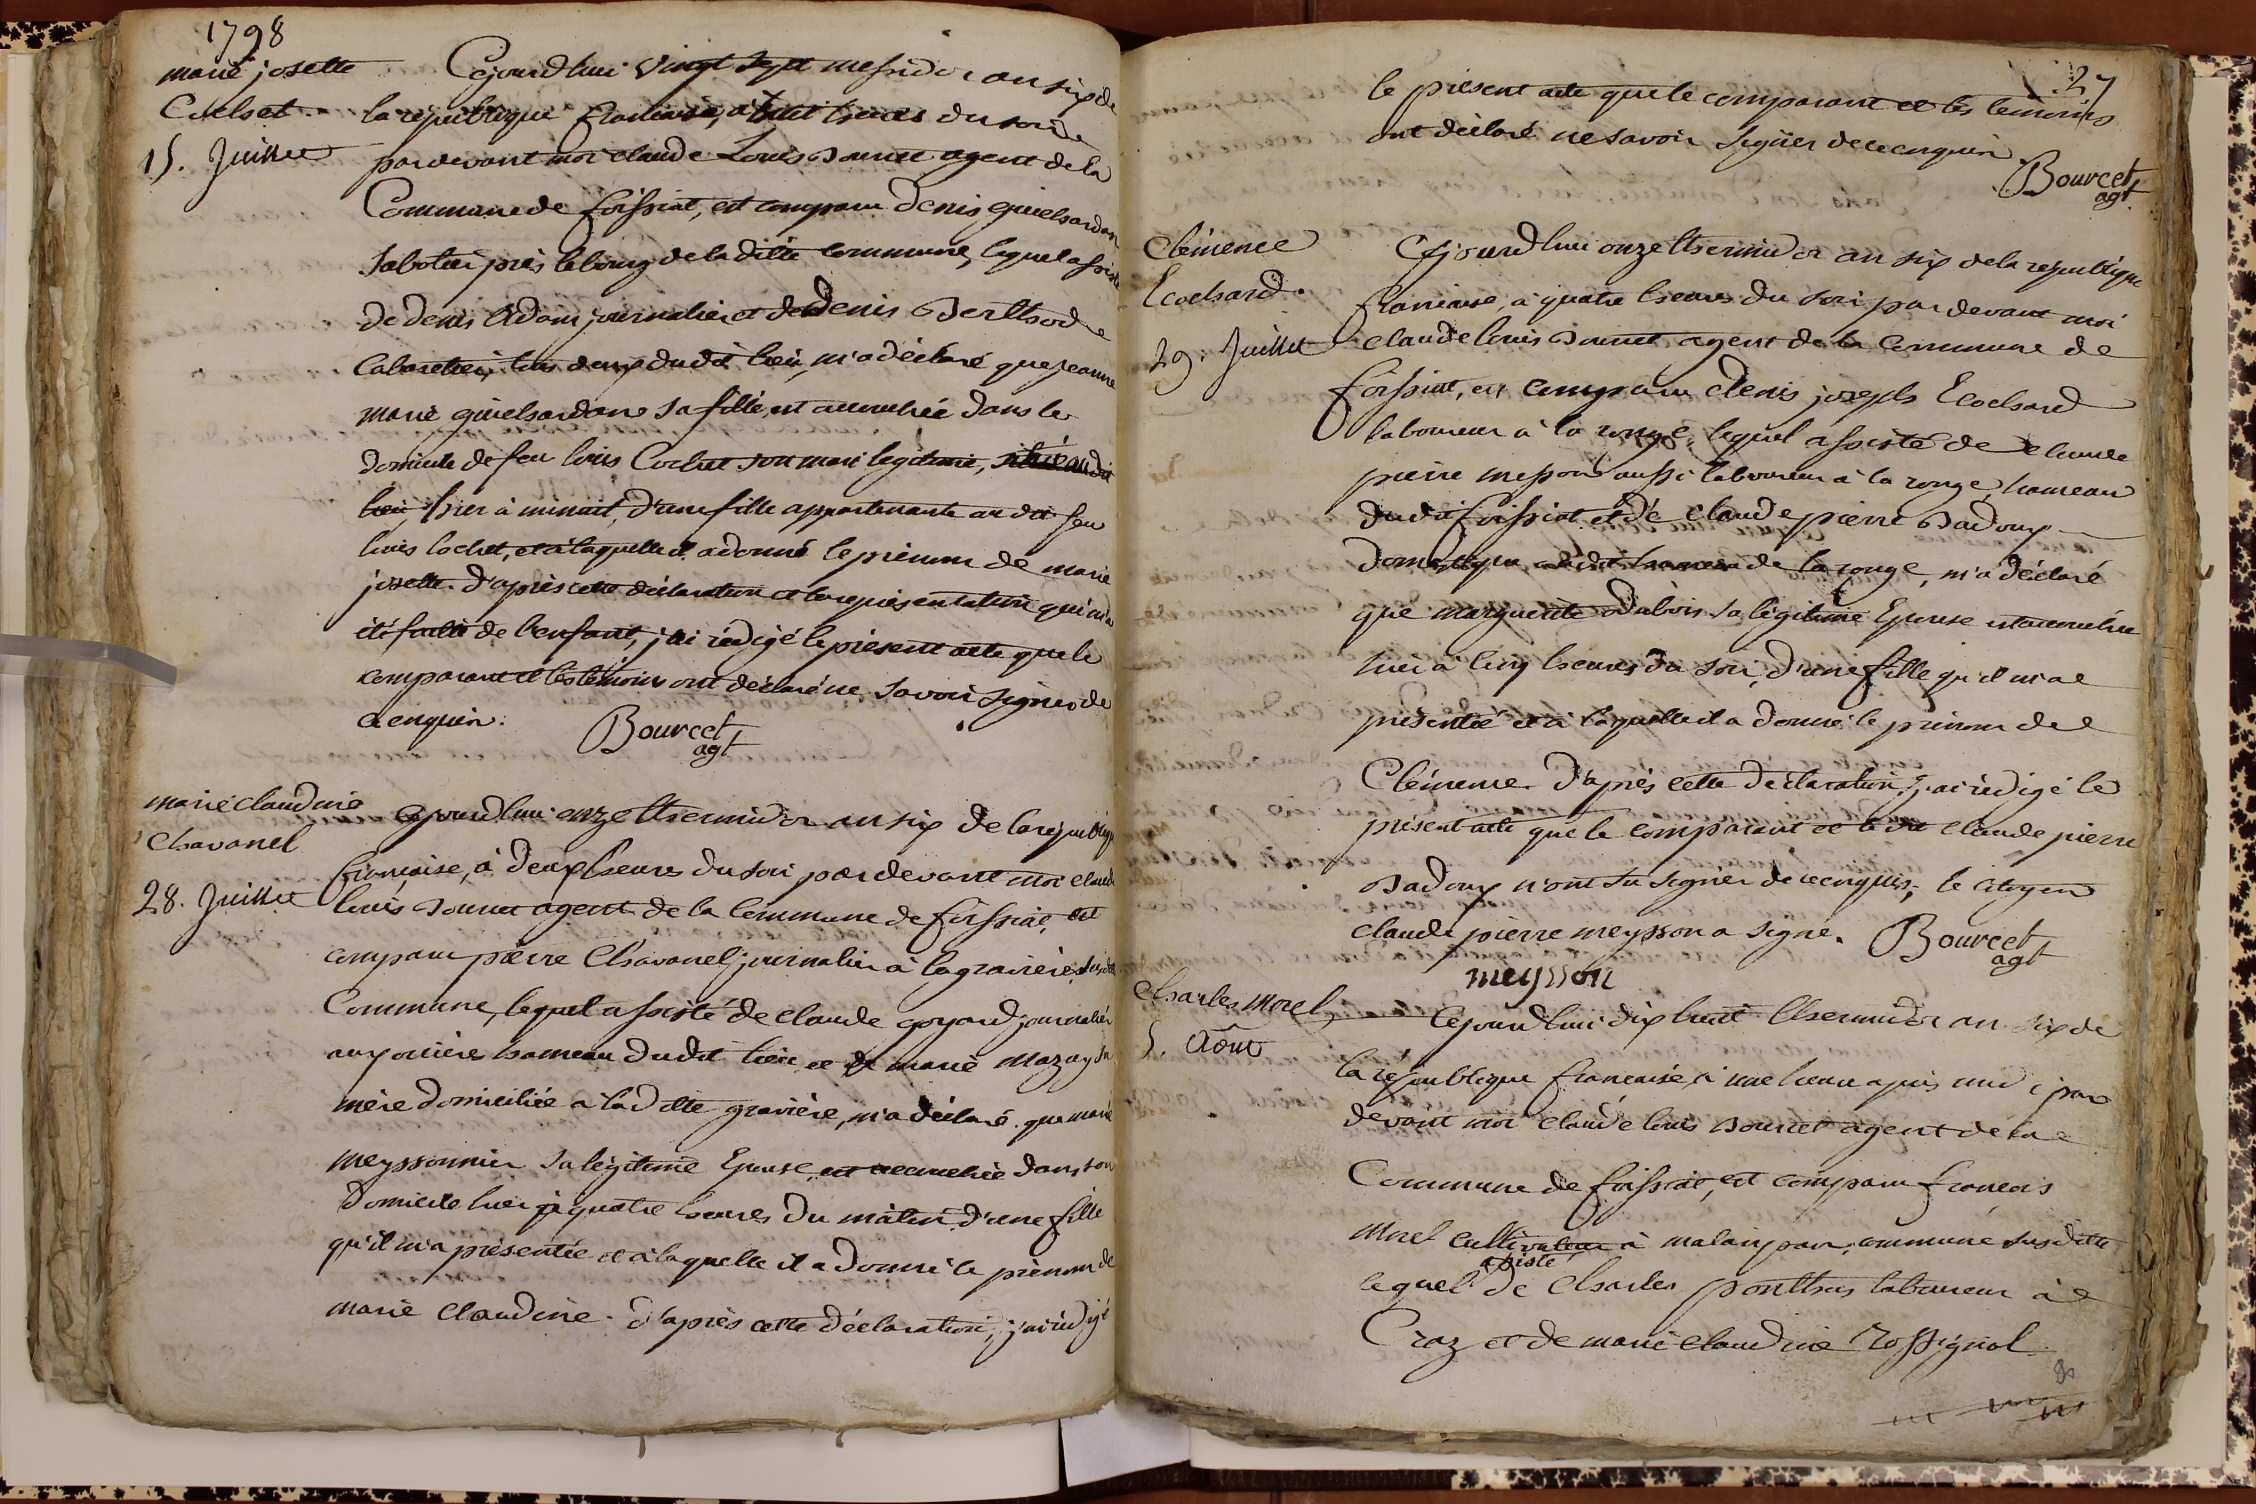 1798
marie josette
Cochet.
15. Juillet
Cejourd'hui vingt sept messidor an six de
la république francaise, à huit heures du soir
par devant moi claude Louis Bourcet agent de la
Commune de foissiat, est comparu denis guichardan
Sabotier près le bourg de la ditte commune, lequel assisté
de denis Adam journalier et de denis Berthod
Cabaretier, tous deux du dit lieu, m'a déclaré que jeanne
marie guichardan sa fille, est accouchée dans le
domicile de feu louis Cochet son mari legitime, situé audit
lieu, hier à minuit, d'une fille appartenante au dit feu
louis Cochet, et à laquelle il a donné le prénom de marie
josette. d'après cette déclaration et la représentation qui m'a
été faite de l'enfant, j'ai rédigé le présent acte que le
comparant et les témoins ont déclaré ne savoir signer de
ce enquis.
Bourcet
agt
marie claudine
Chavanel
28. Juillet
Cejourd'hui onze thermidor an six de la république
francaise, à deux heures du soir par devant moi claude
louis Bourcet agent de la Commune de foissiat, est
comparu pierre Chavanel journalier à la gravière, susditte
Commune, lequel assisté de claude goyard journalier
aux poirières hameau dudit lieu et de marie Mazuy sa
mère domiciliée a la ditte gravière, m'a déclaré que marie
meyssonnier sa légitime Epouse est accouchée dans son
domicile hier à quatre heures du matin d'une fille
qu'il m'a présentée et à laquelle il a donné le prénom de
marie claudine. d'après cette déclaration, j'ai rédigé
27
le présent acte que le comparant et les témoins
ont déclaré ne savoir signer de ce enquis.
Bourcet
agt.
Clémence
Ecochard.
29. Juillet
Cejourd'hui onze thermidor an six de la république
francaise, à quatre heures du soir par devant moi
claude louis Bourcet agent de la Commune de
foissiat, est comparu denis joseph Ecochard
laboureur à la ronge, lequel assisté de claude
pierre messon aussi laboureur à la ronge hameau
dudit foissiat et de claude pierre Badoux
domestique audit hameau de la ronge, m'a déclaré
que marguerite Dubois sa légitime Epouse est accouchée
hier à cinq heures du soir, d'une fille qu'il m'a
présentée et à laquelle il a donné le prénom de
Clémence. d'après cette déclaration, j'ai rédigé le
présent acte que le comparant et le dit claude pierre
Badoux n'ont su signer de ce enquis, le citoyen
claude pierre meysson a signé.
Bourcet
agt
meysson
Charles Morel
5. Août
Cejourd'hui dix huit thermidor an six de
la république francaise à une heure après midi par
devant moi claude louis Bourcet agent de la
Commune de foissiat, est comparu francois
Morel cultivateur à malaipar, commune susditte
assisté
lequel de Charles ponthus laboureur à
Craz et de marie claudine rossignol